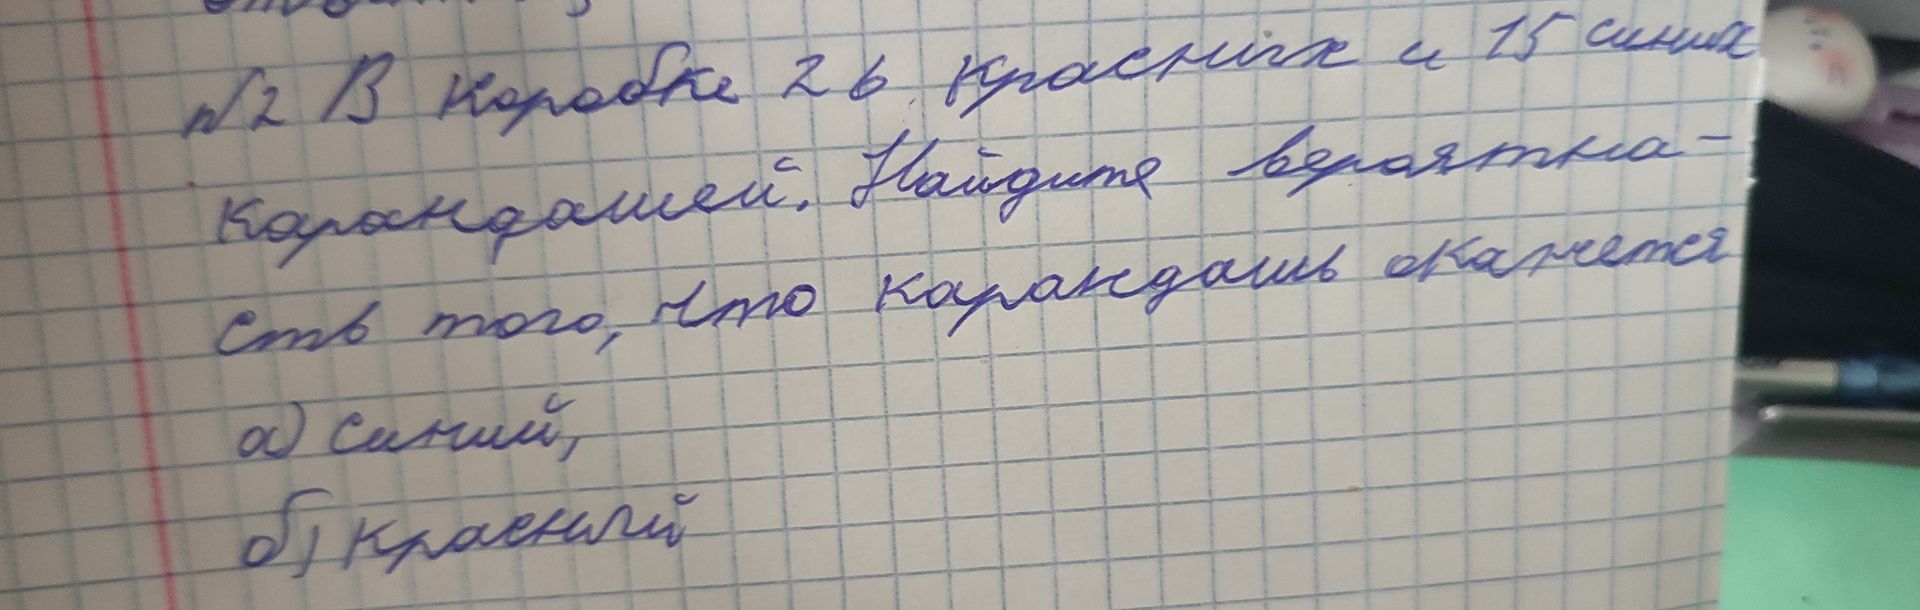 №2 В коробке 26 красных и 15 синих
карандашей. Найдите вероятно-
сть того, что карандашь окажется
а) синий,
б) красный